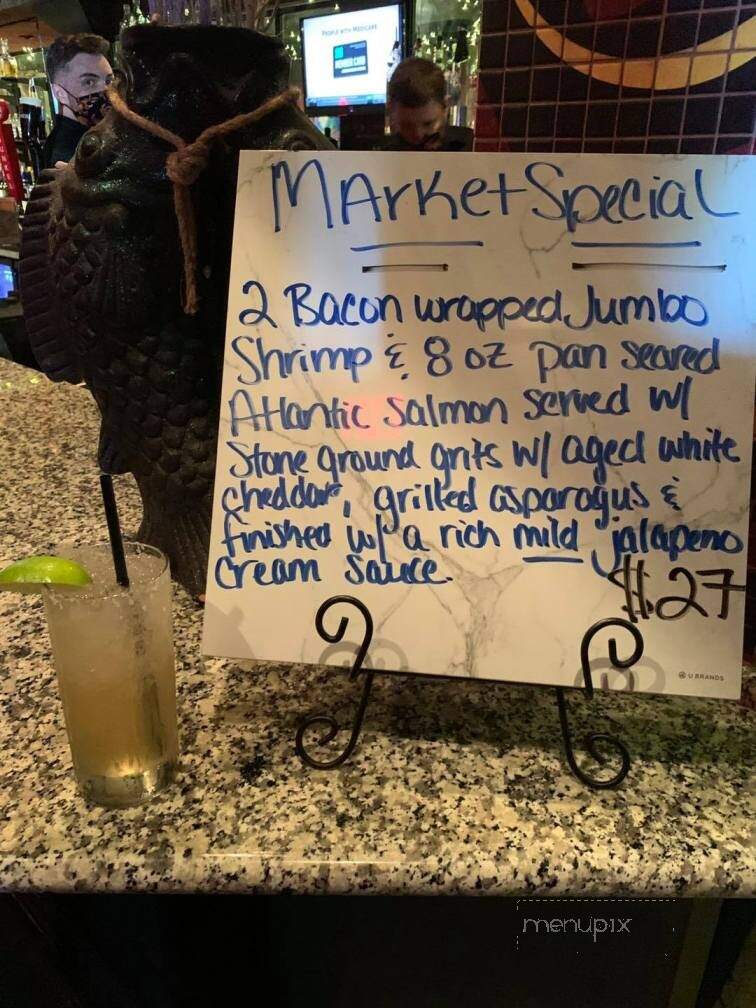 PEOPLE WITH MEDICARE
MEMBER CARD
MArket Special
2 Bacon wrapped Jumbo
Shrimp & 8 oz pan seared
Atlantic Salmon served w/
Stone ground grits w/ aged white
cheddar, grilled asparagus &
finished w/ a rich mild jalapeno
cream sauce.
$27
U BRANDS
menupix